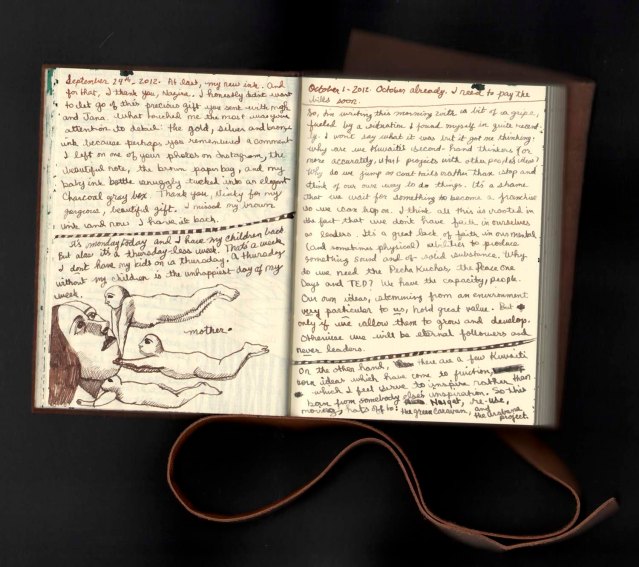 September 24th - 2012. At last, my new ink. And
for that, I thank you, Najira. I honestly didn't want
to let go of this precious gift you sent with
and Jana. What touched me the most was your
attention to detail: the gold, silver and bronze
ink because perhaps you remembered a comment
I left on one of your photos on Instagram, the
beautiful note, the brown paper bag, and my
baby ink bottle snuggly tucked into an elegant
charcoal gray box. Thank you, Dinky for my
gorgeous, beautiful gift. I missed my brown
ink and now I have it back.
It's monday today and I have my children back
But alas it's a thursday-less week. That's a week
I don't have my kids on a thursday. A thursday
without my children is the unhappiest day of my
week.
mother.
October 1 - 2012. October already. I need to pay the
bills soon.
So, I'm writing this morning with a bit of a gripe,
fueled by a situation I found myself in quite recent-
ly. I won't say what it was but it got me thinking.
Why are we Kuwaitis second-hand thinkers for
more accurately, start projects with other people's ideas?
Why do we jump on coat tails rather than stop and
think of our own way to do things. It's a shame
that we wait for something to become a franchise
so we can hop on. I think all this is rooted in
the fact that we don't have faith in ourselves
as leaders. It's a great lack of faith in our mental
(and sometimes physical) abilities to produce
something sound and of solid substance. Why
do we need the Pecha Kuchas, the Peace One
Days and TED? We have the capacity, people.
Our own ideas, stemming from an environment
very particular to us, hold great value. But
only if we allow them to grow and develop.
Otherwise we will be eternal followers and
never leaders.
On the other hand, there are a few Kuwaiti
born ideas which have come to fruition,
which I feel strive to inspire rather than
born from somebody else's inspiration. So this
morning, hats off to: Nuqat, re-use,
the green caravan, and the arabana
project.